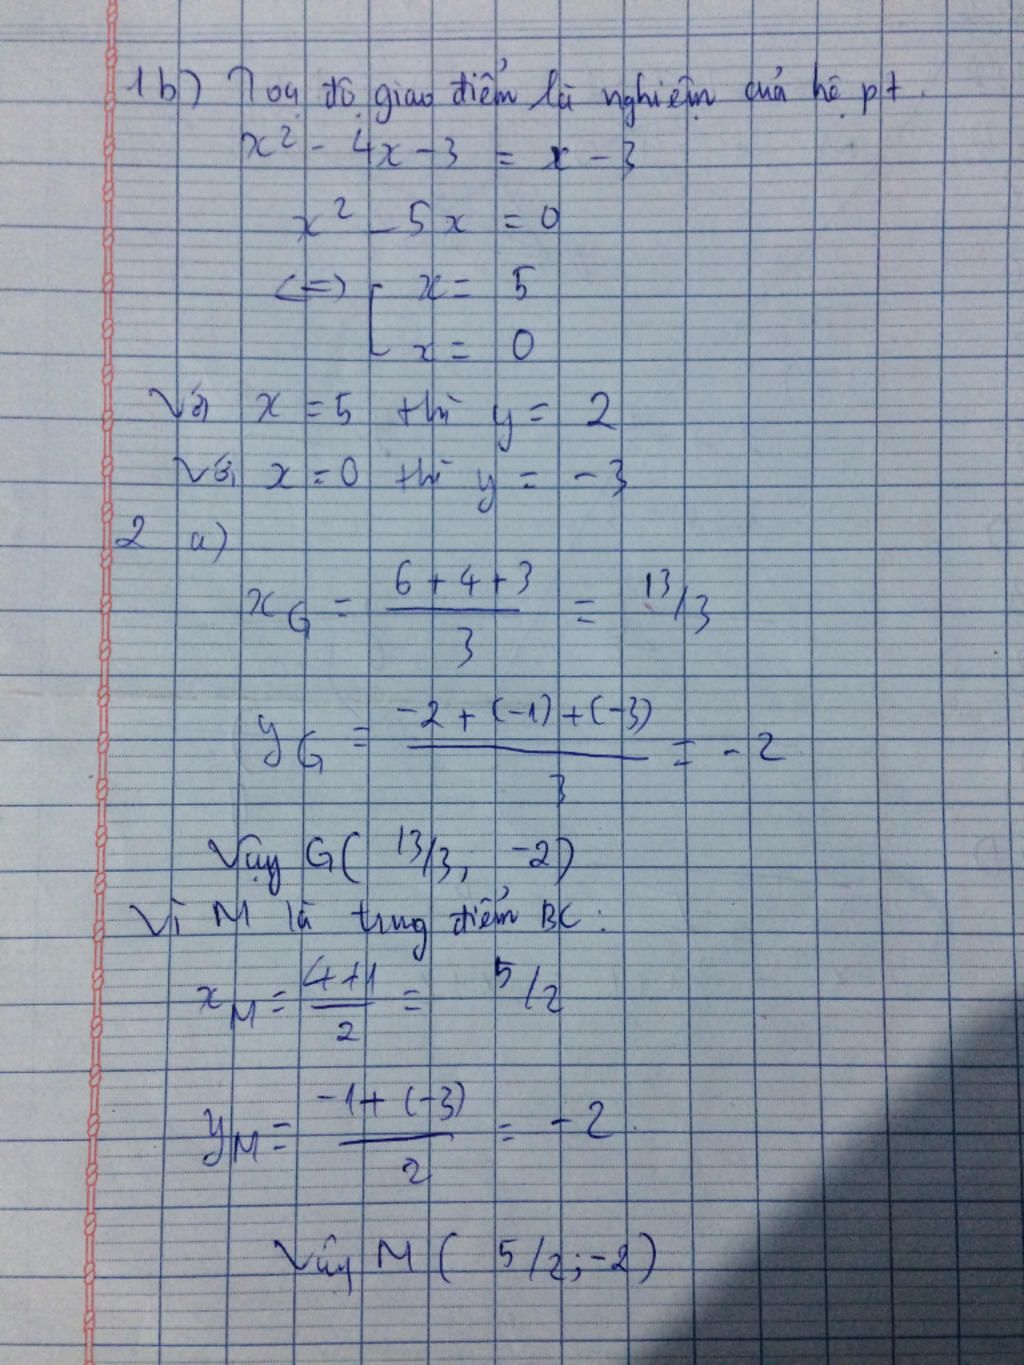 1b) Toạ độ giao điểm là nghiệm của hệ pt.
x² - 4x - 3 = x - 3
x² - 5x = 0
<=> [ x = 5
x = 0
Với x = 5 thì y = 2
Với x = 0 thì y = -3
2 a)
x_G = (6 + 4 + 3)/3 = 13/3
y_G = (-2 + (-1) + (-3))/3 = -2
Vậy G( 13/3; -2)
Vì M là trung điểm BC:
x_M = (4+1)/2 = 5/2
y_M = (-1 + (-3))/2 = -2.
Vậy M ( 5/2; -2)